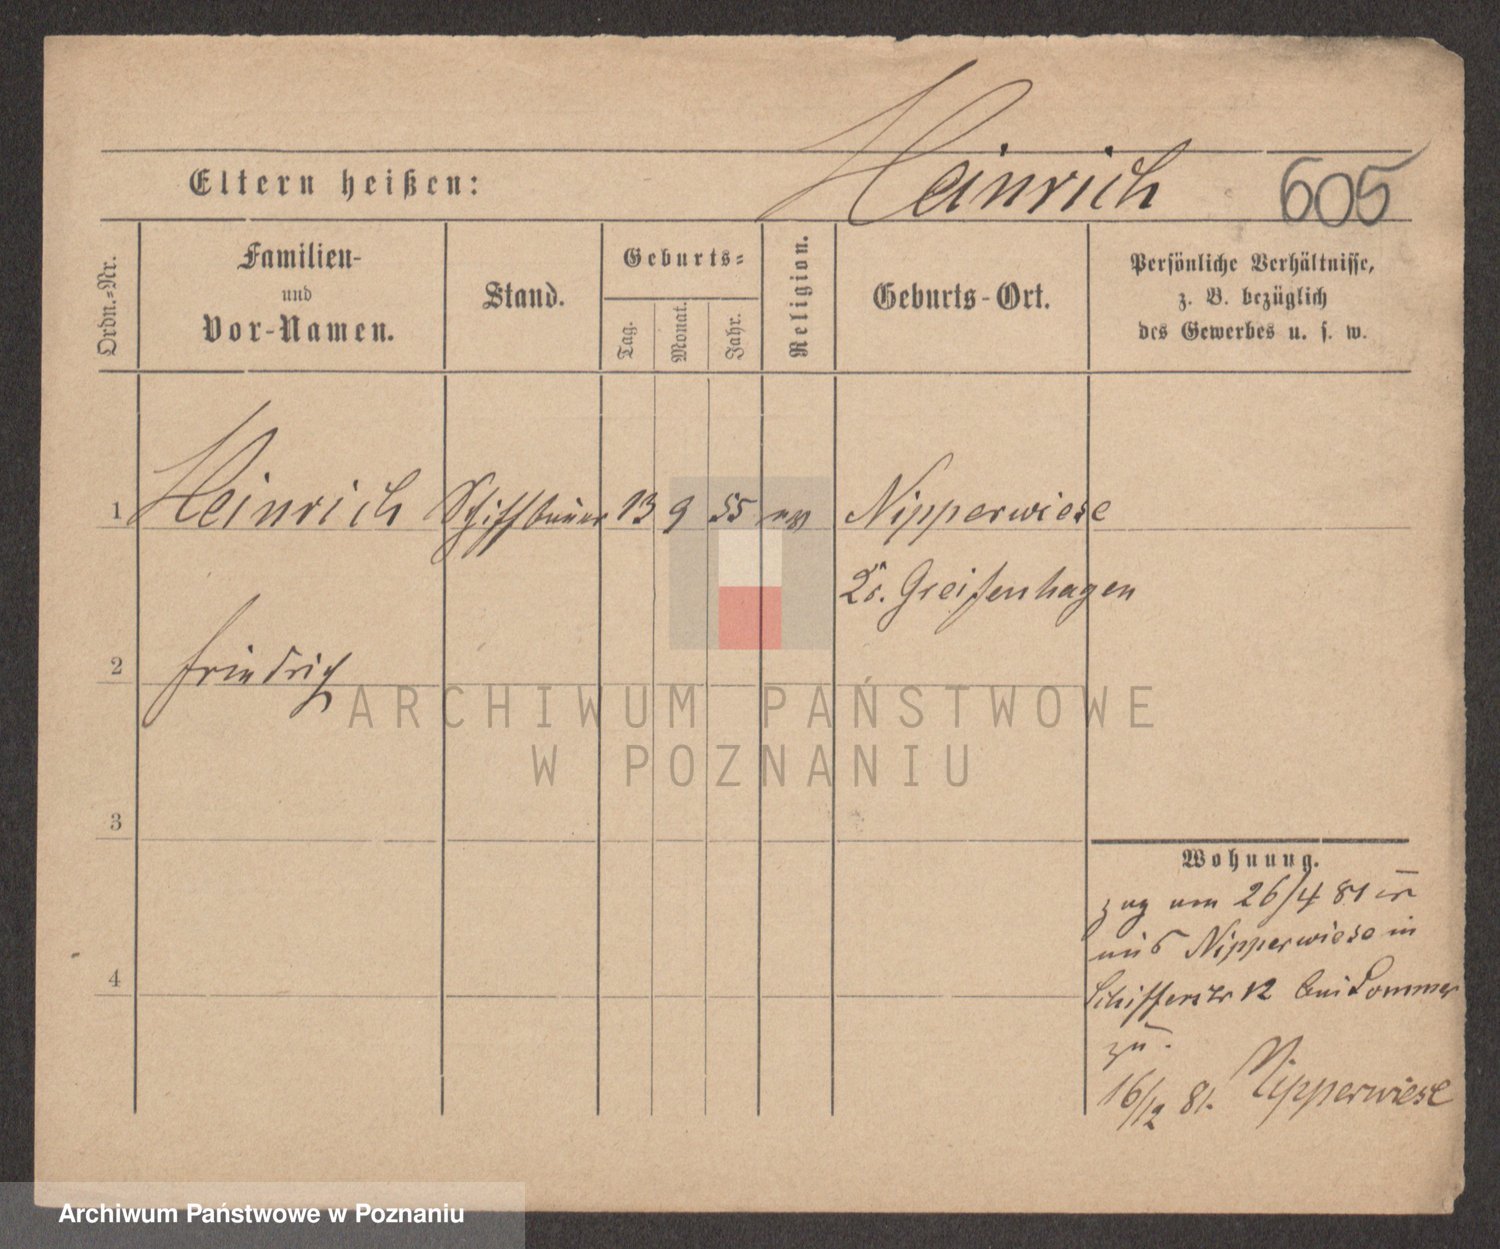 Heinrich
605
Eltern heißen:
Ordn.-Nr.
Familien-
und
Vor-Namen.
Stand.
Geburts-
Tag.
Monat.
Jahr.
Religion.
Geburts-Ort.
Persönliche Verhältnisse,
z. B. bezüglich
des Gewerbes u. s. w.
1 Heinrich Schiffbauer 13 9 55 ev Nipperwiese
Kr. Greifenhagen
2 Friedrich
3
4
Wohnung.
zog am 26/4 81
aus Nipperwiese in
Schifferstr 12 bei Sommer
zu.
16/12 81. Nipperwiese
ARCHIWUM PAŃSTWOWE
W POZNANIU
Archiwum Państwowe w Poznaniu